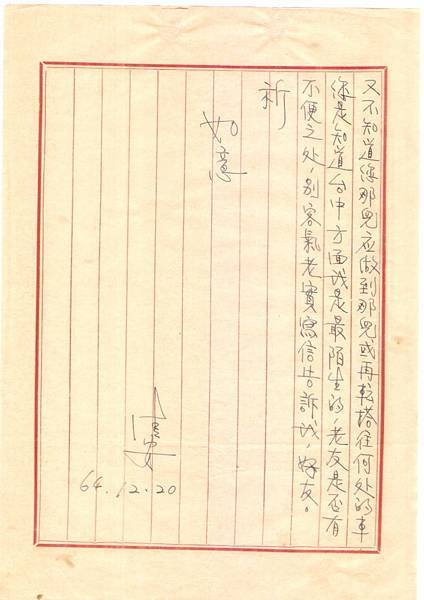 又不知道您那兒应做到那兒或再転搭往何处的車
您是知道台中方面我是最陌生的，老友是否有
不便之处，别客氣老實寫信告訴我，好友。
祈
如意
64.12.20